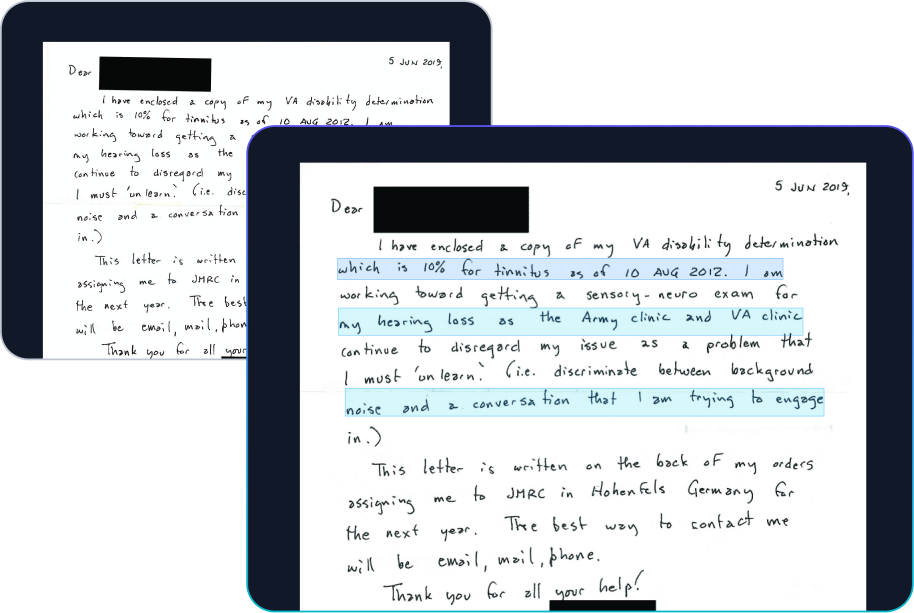 5 JUN 2019,
Dear
I have enclosed a copy of my VA disability determination
which is 10% for tinnitus as of 10 AUG 2012. I am
working toward getting a
my hearing loss as the
continue to disregard my
I must 'unlearn'. (i.e. disc
noise and a conversation
in.)
This letter is written
assigning me to JMRC in
the next year. The best
will be email, mail, phon
Thank you for all your
5 JUN 2019,
Dear
I have enclosed a copy of my VA disability determination
which is 10% for tinnitus as of 10 AUG 2012. I am
working toward getting a sensory-neuro exam for
my hearing loss as the Army clinic and VA clinic
continue to disregard my issue as a problem that
I must 'unlearn'. (i.e. discriminate between background
noise and a conversation that I am trying to engage
in.)
This letter is written on the back of my orders
assigning me to JMRC in Hohenfels Germany for
the next year. The best way to contact me
will be email, mail, phone.
Thank you for all your help!